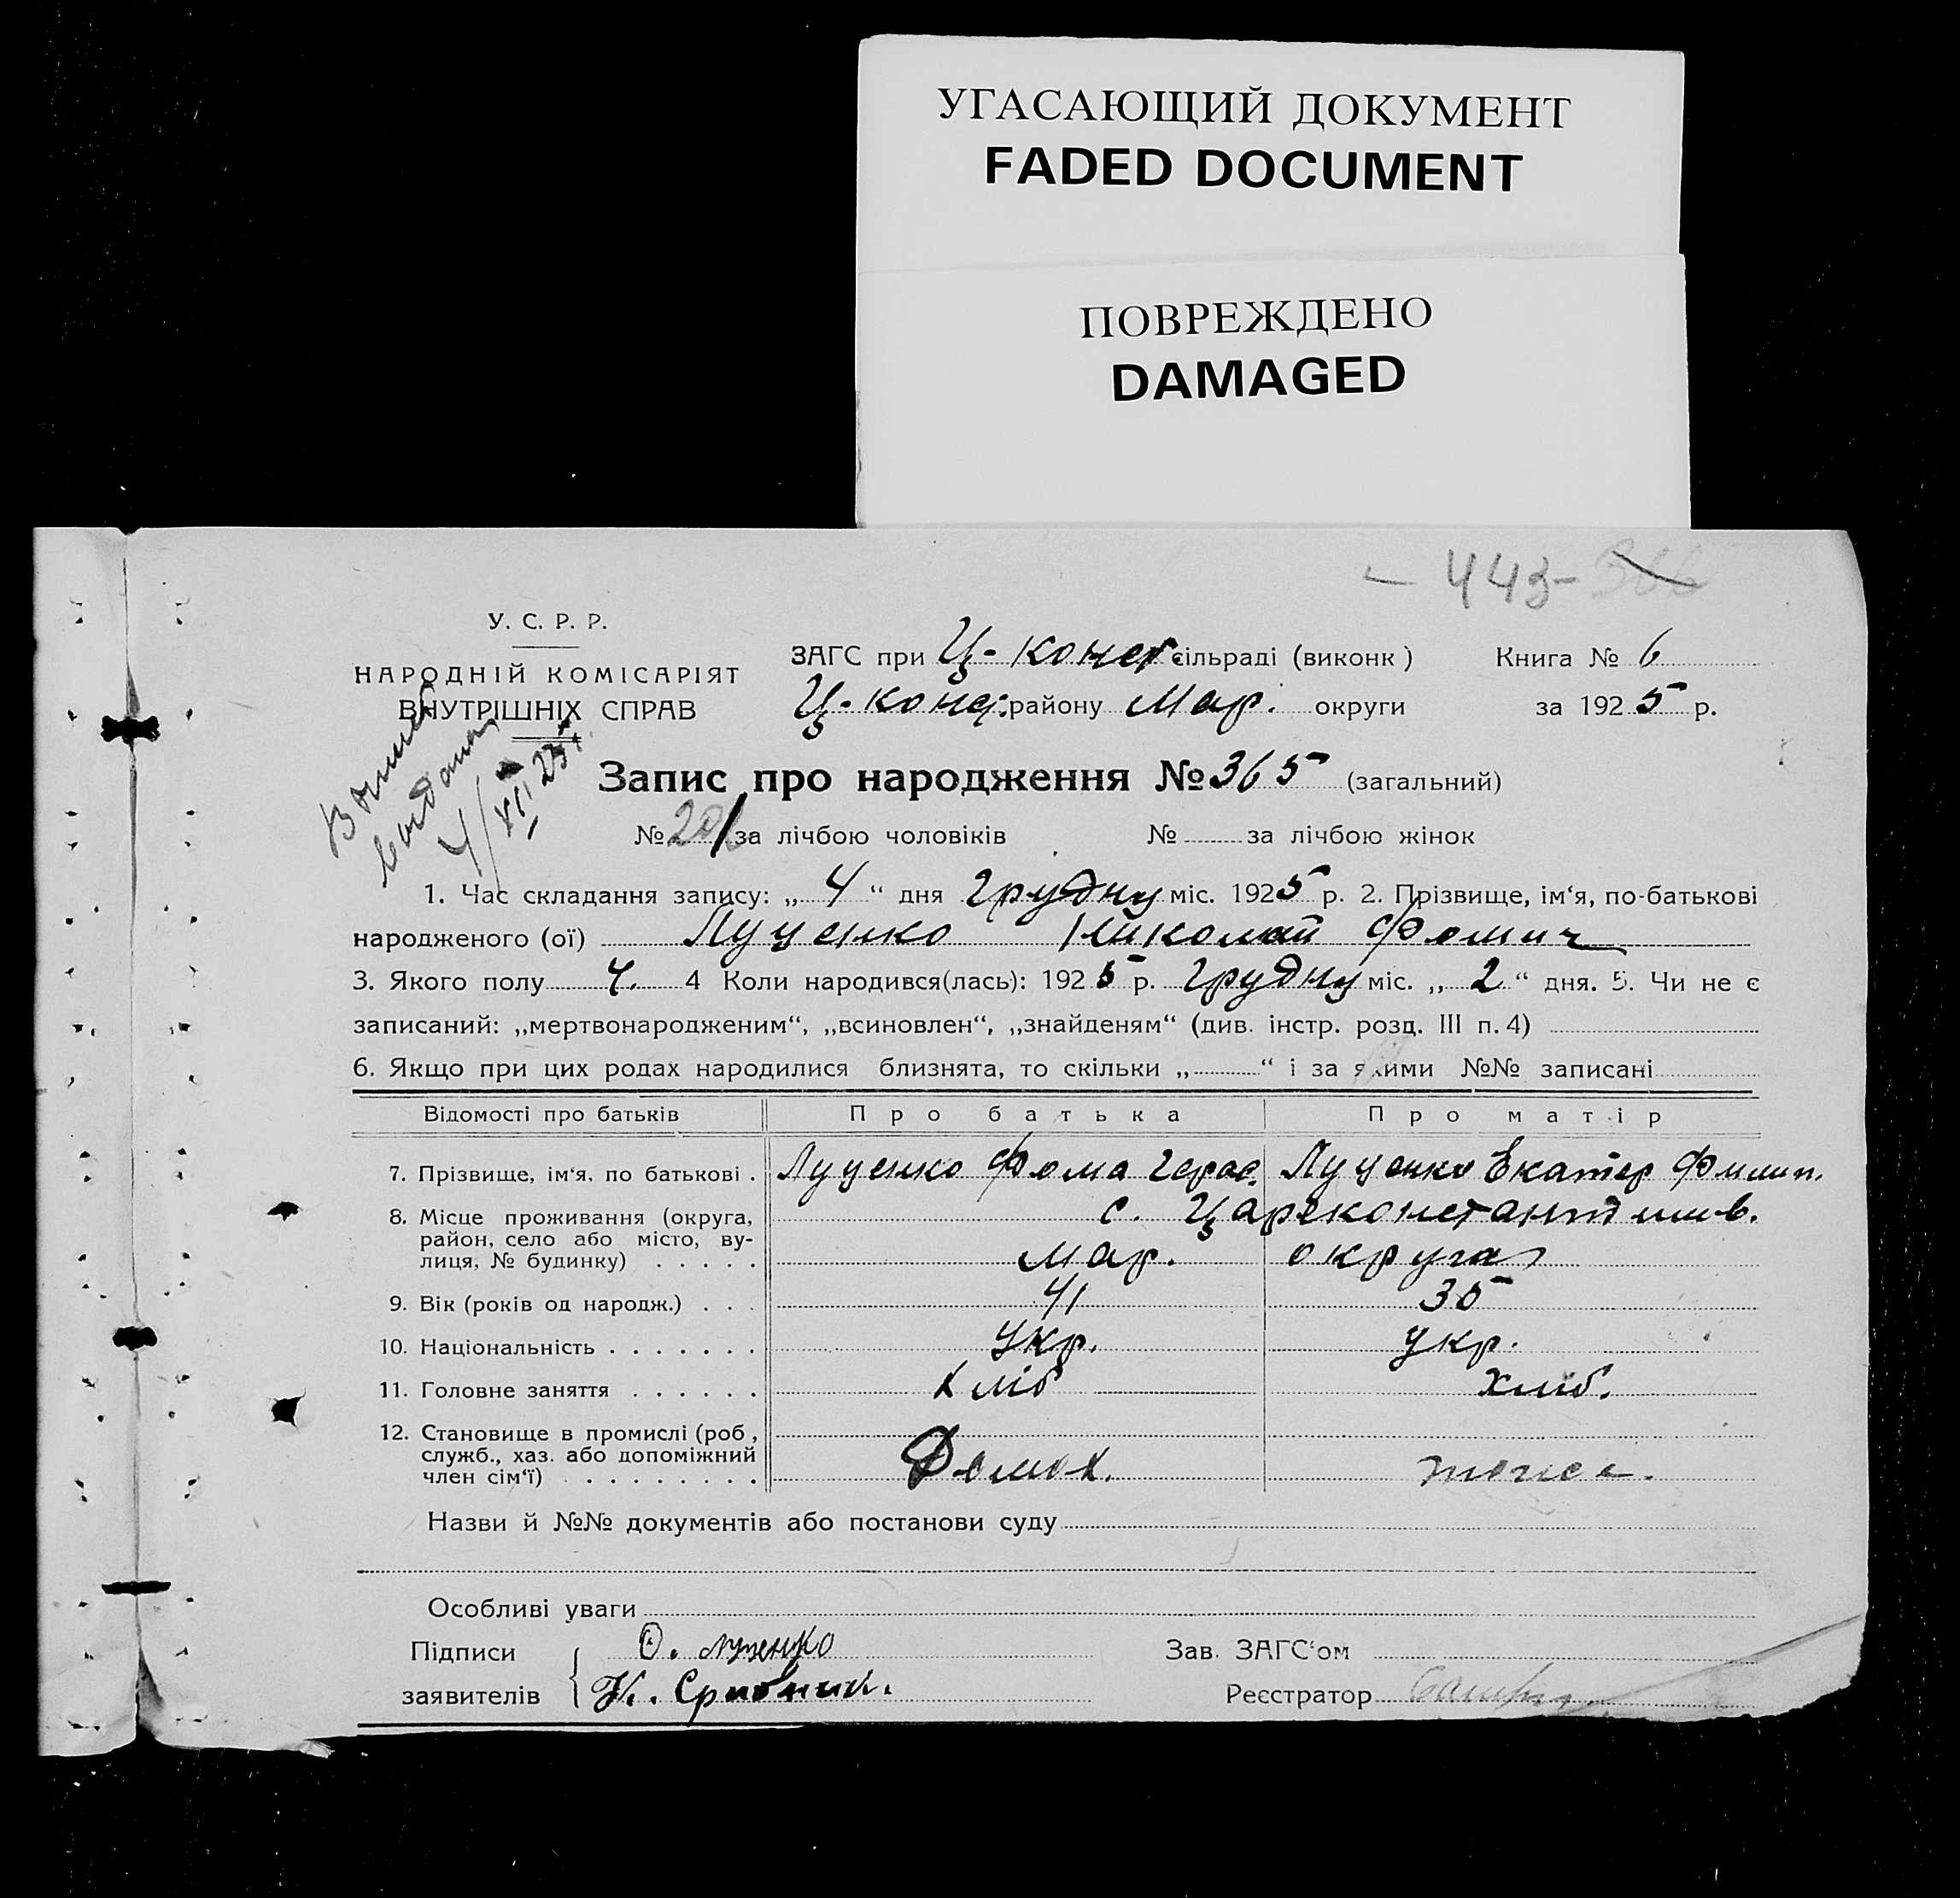 УГАСАЮЩИЙ ДОКУМЕНТ
FADED DOCUMENT
ПОВРЕЖДЕНО
DAMAGED
– 443 –
У. С. Р. Р.
НАРОДНІЙ КОМІСАРІЯТ
ВНУТРІШНІХ СПРАВ
ЗАГС при Ц-конст сільраді (виконк ) Книга № 6
Ц-конст. району Мар. округи за 1925 р.
Запис про народження № 365 (загальний)
№ 201 за лічбою чоловіків № за лічбою жінок
4/XII 25
1. Час складання запису: „ 4 “ дня грудну міс. 1925 р. 2. Прізвище, ім‘я, по-батькові
народженого (ої) Луценко Николай Фомич
3. Якого полу Ч. 4 Коли народився(лась): 1925 р. грудну міс. „ 2 “ дня. 5. Чи не є
записаний: „мертвонародженим“, „всиновлен“, „знайденям“ (див. інстр. розд. III п. 4)
6. Якщо при цих родах народилися близнята, то скільки „ “ і за якими №№ записані
Відомості про батьків Про батька Про матір
7. Прізвище, ім‘я, по батькові . Луценко Фома Герас. Луценко Екатер Филип.
8. Місце проживання (округа, с. Цареконстантинов.
район, село або місто, ву-
лиця, № будинку) . . . . . Мар. округа
9. Вік (років од народж.) . . . 41 35
10. Національність . . . . . . . Укр. Укр.
11. Головне заняття . . . . . . Хліб Хліб.
12. Становище в промислі (роб ,
служб., хаз. або допоміжний
член сім‘ї) . . . . . . . . . Домох.
Назви й №№ документів або постанови суду
Особливі уваги
Підписи Ф. Луценко Зав. ЗАГС‘ом
заявителів К. Срибний. Реєстратор